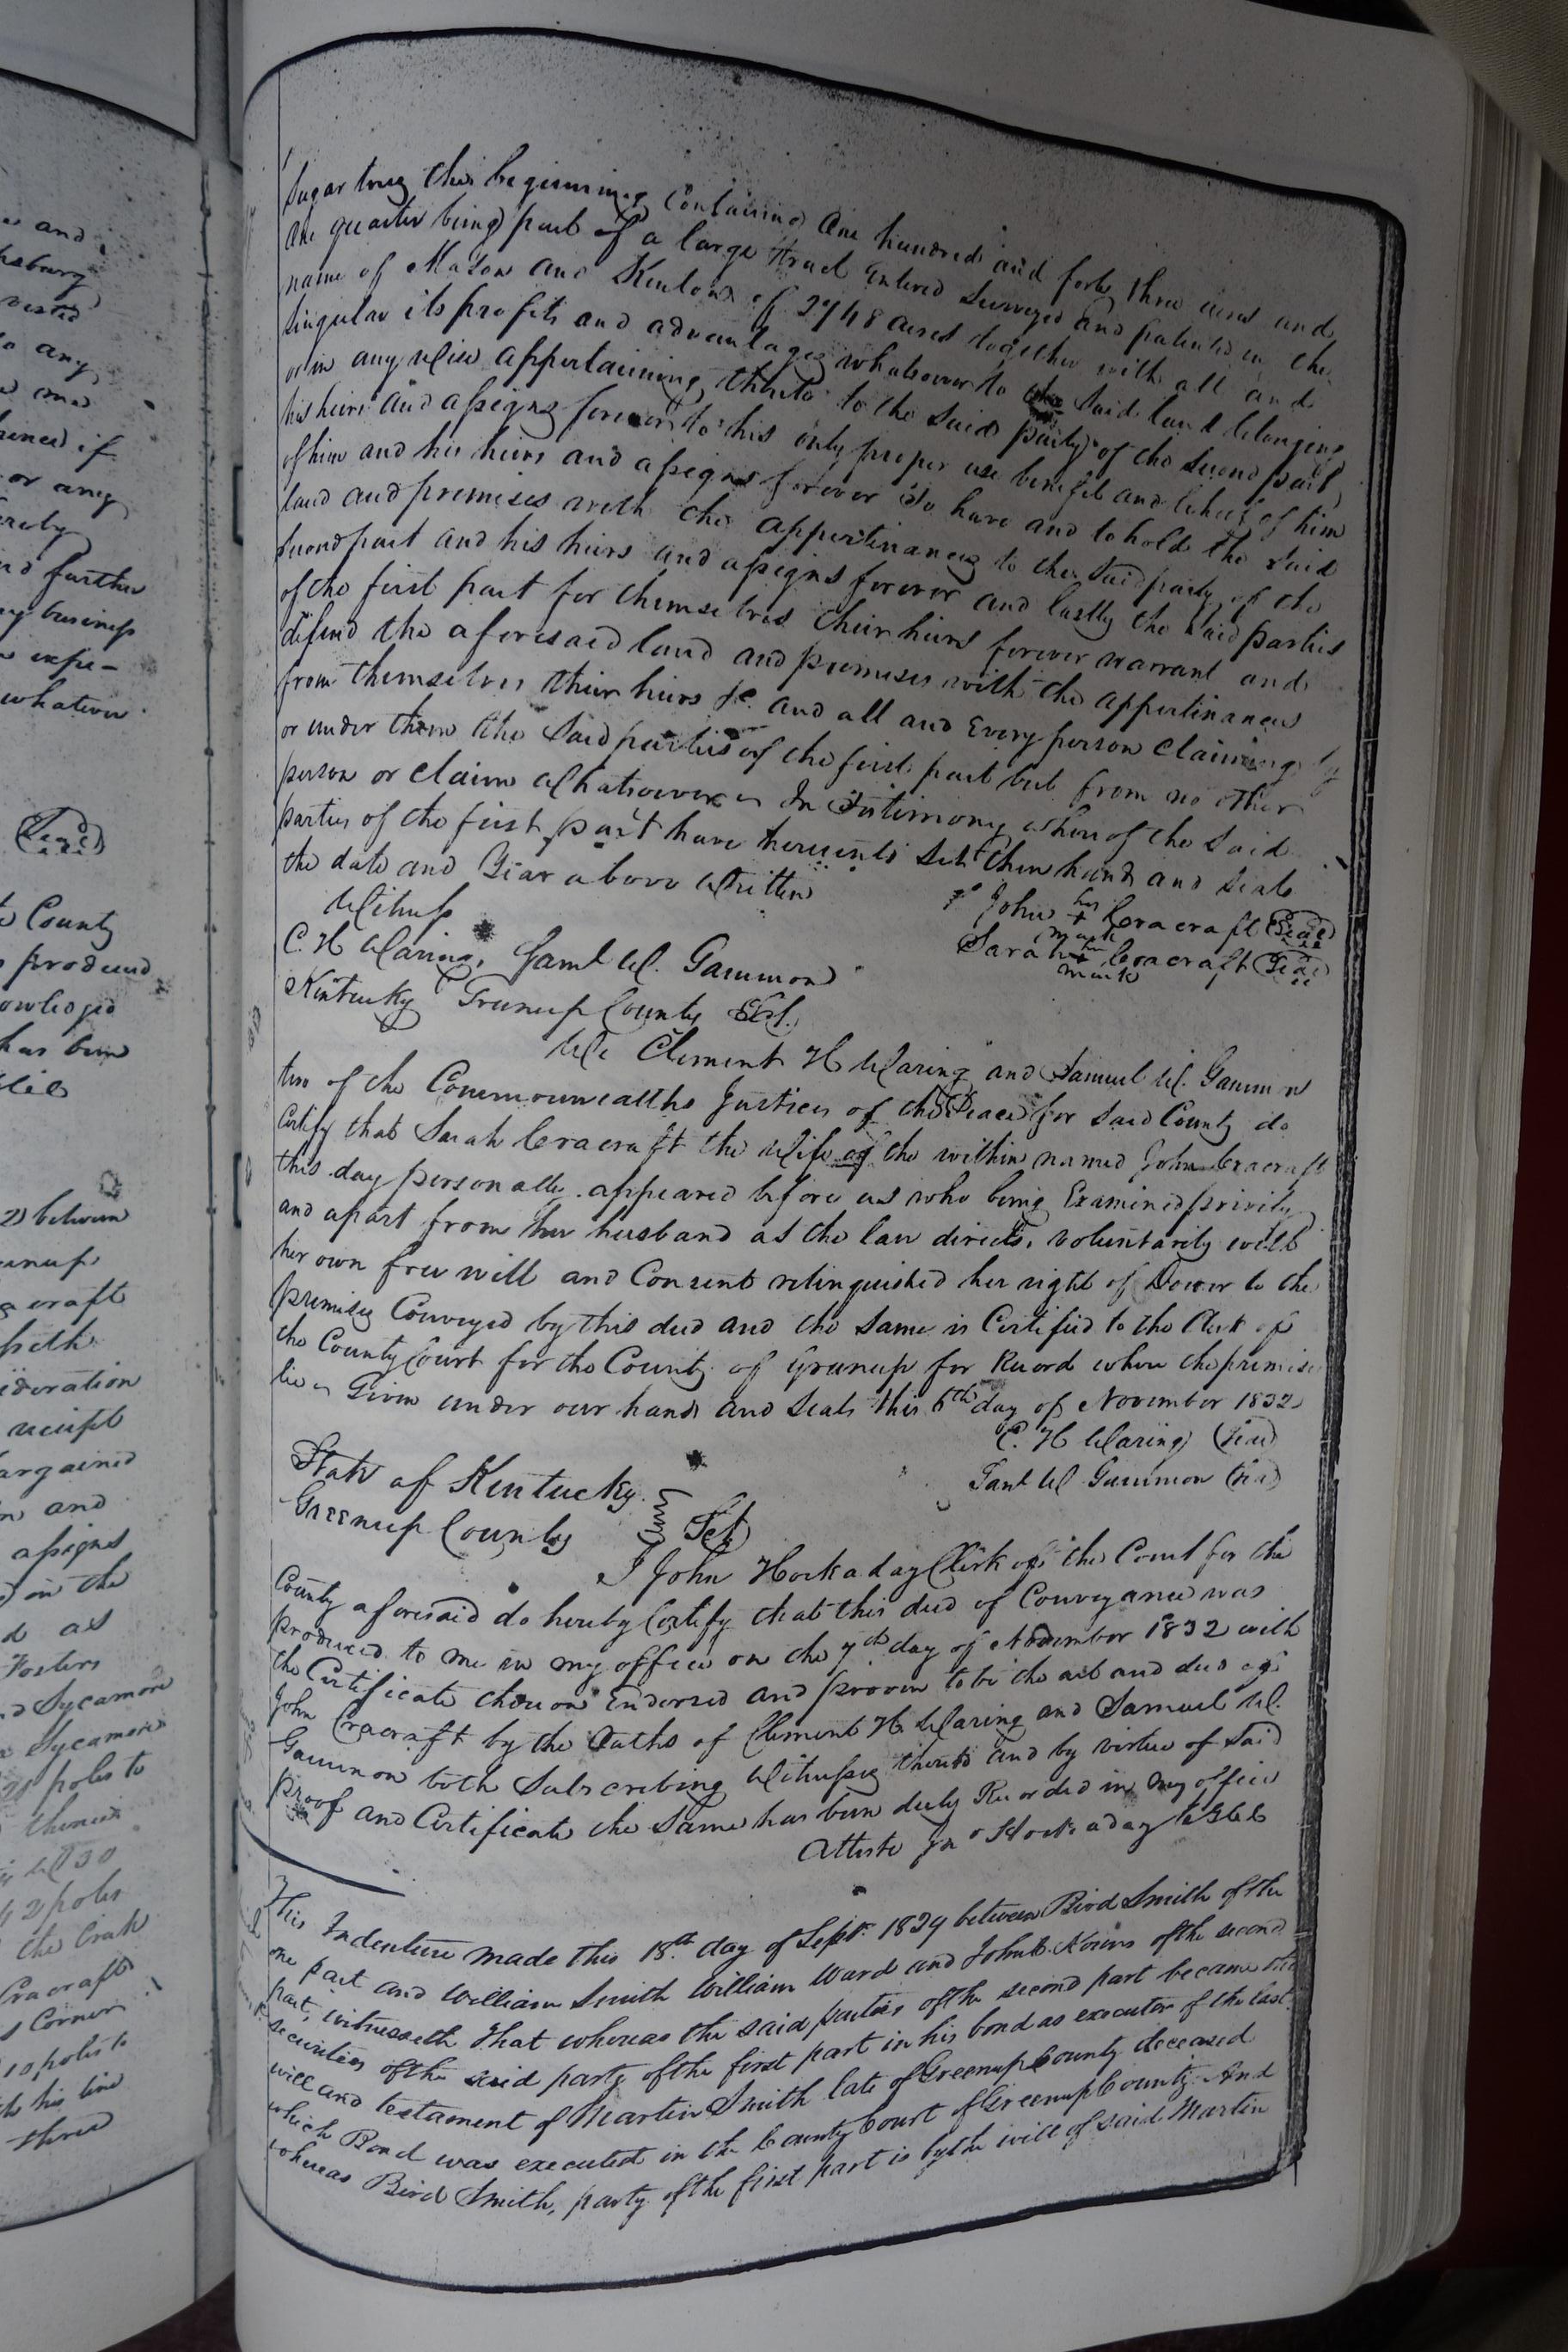 and
any
and
if
or any
further
business
expe-
whatever
(Seal)
County
produced
has been
2) between
receipt
bargained
and
assigns
on the
as
Fosters
Sycamore
Sycamore
poles to
42 poles
the Creek
Cracraft
Corner
10 poles to
his line
three
Sugar tree the beginning Containing One hundred and forty three acres and
One quarter being part of a large tract Entered Surveyed and patented in the
name of Mason and Kenton of 2748 acres together with all and
Singular its profits and advantages whatsoever to the Said land belonging
or in any wise appertaining thereto to the Said party of the Second part
his heirs and assigns forever to his only proper use benefit and behoof of him
of him and his heirs and assigns forever To have and to hold the Said
land and premises with the appertinances to the Said party of the
Second part and his heirs and assigns forever and lastly the Said parties
of the first part for themselves their heirs forever warrant and
defend the aforesaid land and premises with the appertinances
from themselves their heirs &c and all and Every person Claiming by
or under them the Said parties of the first part but from no other
person or Claim Whatsoever In Testimony where of the Said
parties of the first part have hereunto Set their hands and Seals
the date and Year above Written
Witness
John his + mark Cracraft (Seal)
C. H Waring, Saml W. Gammon
Sarah her + mark Cracraft (Seal)
Kentucky Greenup County Sct.
We Clement H Waring and Samuel W. Gammon
two of the Commonwealths Justices of the Peace for Said County do
Certify that Sarah Cracraft the Wife of the within named John Cracraft
this day personally appeared before us who being Examined privily
and apart from her husband as the law directs, voluntarily with
her own free will and Consent relinquished her right of Dower to the
premises Conveyed by this deed and the Same is Certified to the Clerk of
the County Court for the County of Greenup for Record where the premises
lie Given under our hands and Seals this 6th day of November 1832
C. H Waring (Seal)
Saml W Gammon (Seal)
State of Kentucky
Greenup County Sct
I John Hockaday Clerk of the Court for the
County aforesaid do hereby Certify that this deed of Conveyance was
produced to me in my office on the 7th day of November 1832 with
the Certificate thereon Endorsed and proven to be the act and deed of
John Cracraft by the Oaths of Clement H Waring and Samuel W.
Gammon both Subscribing Witnesses thereto and by virtue of Said
proof and Certificate the Same has been duly Recorded in my office
Atteste Jno Hockaday
This Indenture made this 18th day of Sept. 1829 between Bird Smith of the
one part and William Smith William Ward and John of the second
part, witnesseth that whereas the said parties of the second part became the
securities of the said party of the first part in his bond as executor of the last
will and testament of Martin Smith late of Greenup County deceased
which Bond was executed in the County Court of Greenup County. And
whereas Bird Smith, party of the first part is by the will of said Martin